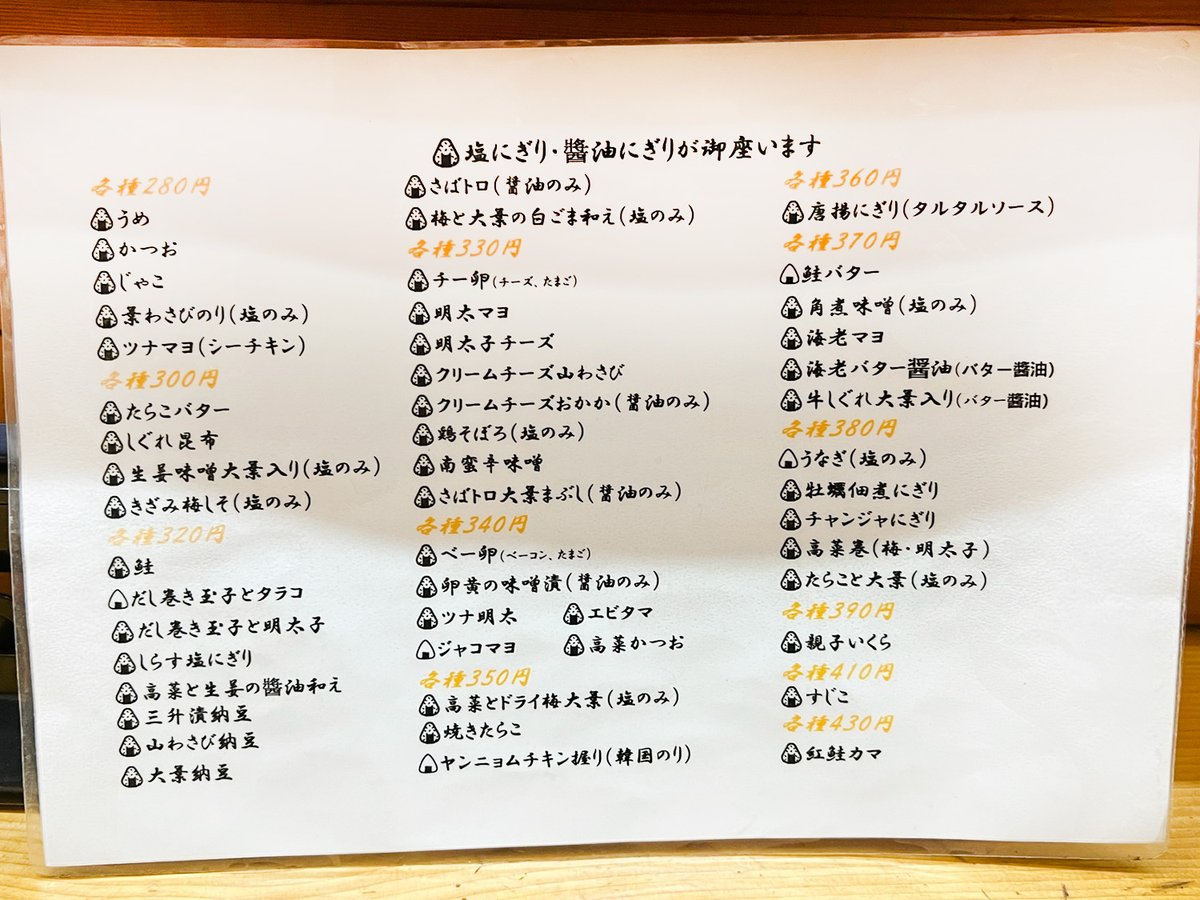 塩にぎり・醬油にぎりが御座います
各種280円
うめ
かつお
じゃこ
葉わさびのり(塩のみ)
ツナマヨ(シーチキン)
各種300円
たらこバター
しぐれ昆布
生姜味噌大葉入り(塩のみ)
きざみ梅しそ(塩のみ)
各種320円
鮭
だし巻き玉子とタラコ
だし巻き玉子と明太子
しらす塩にぎり
高菜と生姜の醬油和え
三升漬納豆
山わさび納豆
大葉納豆
さばトロ(醤油のみ)
梅と大葉の白ごま和え(塩のみ)
各種330円
チー卵(チーズ、たまご)
明太マヨ
明太子チーズ
クリームチーズ山わさび
クリームチーズおかか(醤油のみ)
鶏そぼろ(塩のみ)
南蛮辛味噌
さばトロ大葉まぶし(醤油のみ)
各種340円
ベー卵(ベーコン、たまご)
卵黄の味噌漬(醤油のみ)
ツナ明太 エビタマ
ジャコマヨ 高菜かつお
各種350円
高菜とドライ梅大葉(塩のみ)
焼きたらこ
ヤンニョムチキン握り(韓国のり)
各種360円
唐揚にぎり(タルタルソース)
各種370円
鮭バター
角煮味噌(塩のみ)
海老マヨ
海老バター醤油(バター醬油)
牛しぐれ大葉入り(バター醬油)
各種380円
うなぎ(塩のみ)
牡蠣佃煮にぎり
チャンジャにぎり
高菜巻(梅・明太子)
たらこと大葉(塩のみ)
各種390円
親子いくら
各種410円
すじこ
各種430円
紅鮭カマ